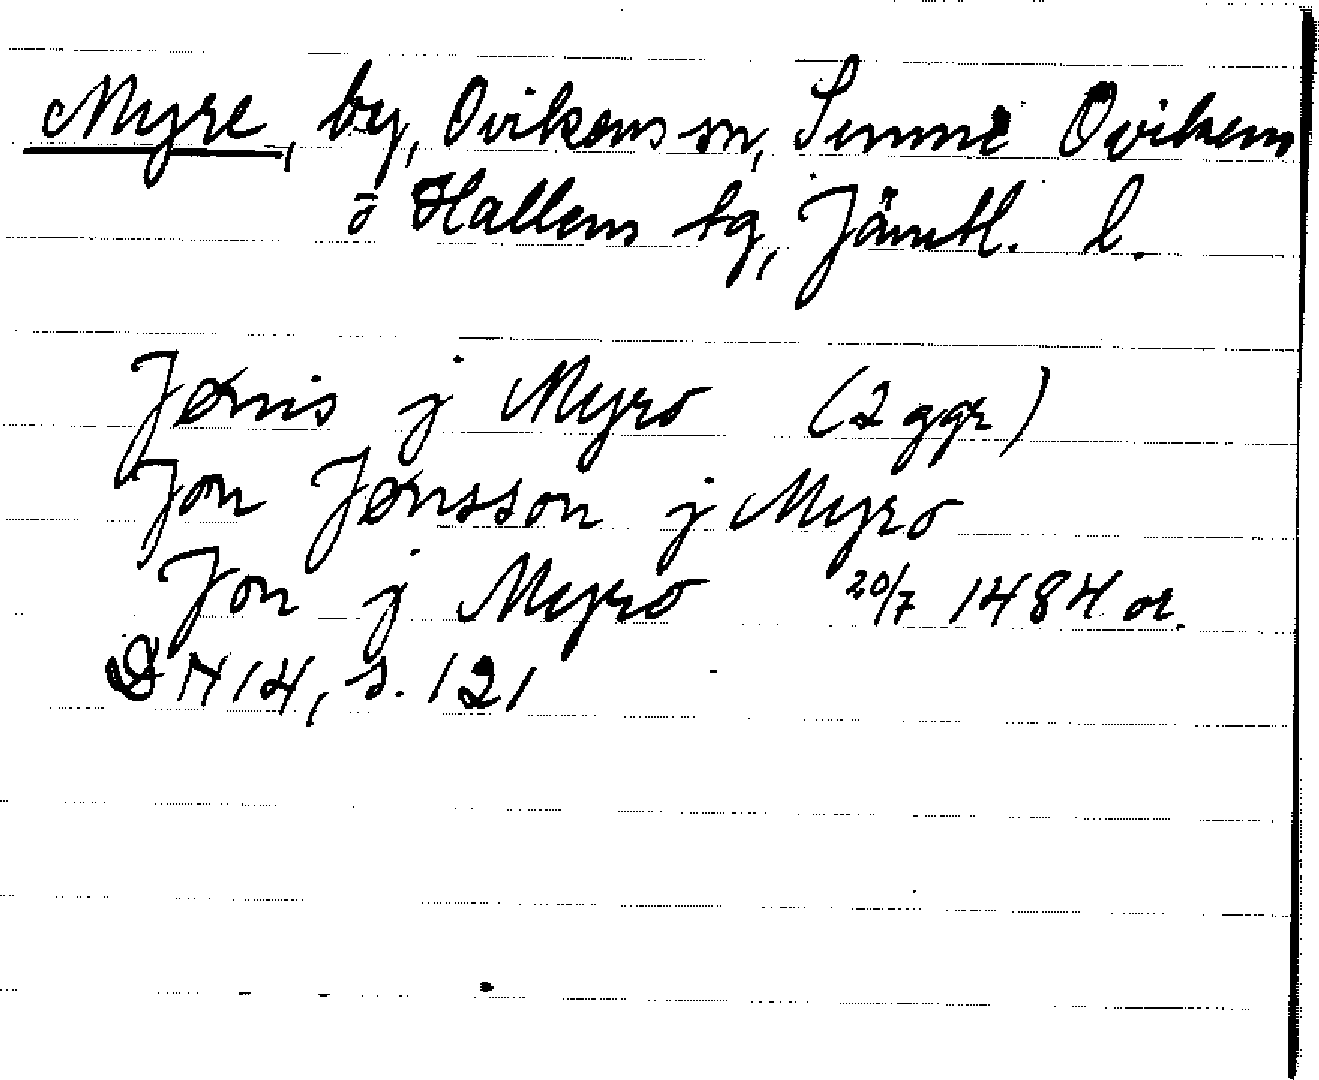 Myre, by, Ovikens sn, Sunne Oviken
o Hallens tg, Jämtl. l.
Jønis j Myro (2 ggr)
Jon Jønsson j Myro
Jon j Myro 20/7 1484 or.
DN 14, s. 121